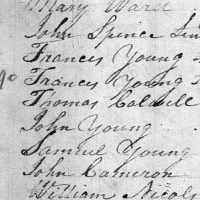 Mary Ward
John Spence
Francis Young
Francis Young
Thomas Colwell
John Young
Samuel Young
John Cameron
William Nicols